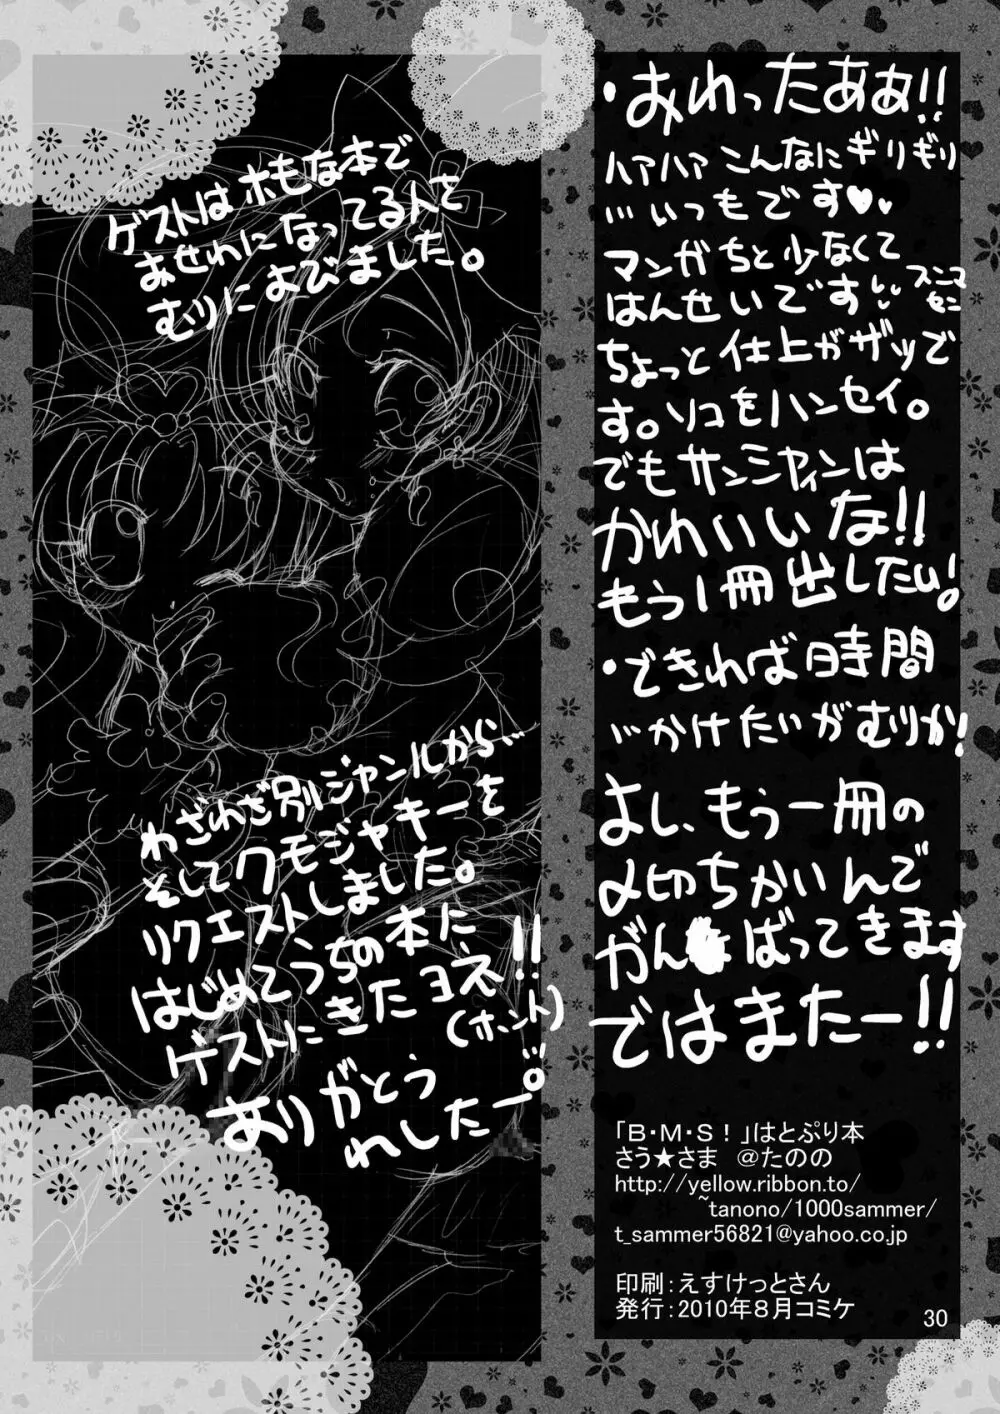 ・おわったあぁ!!
ハアハア こんなにギリギリ
…いつもです♥♥
マンガちと少なくて
はんせいです… スミマセン
ちょっと仕上がザツで
す。ソコをハンセイ。
でもサンシャインは
かわいいな!!
もう1冊出したい!
・できれば時間
…かけたいがむりか!
よし、もう一冊の
〆切ちかいんで
がんばってきます
ではまたー!!
「B・M・S!」はとぷり本
さう★さま @たのの
http://yellow.ribbon.to/
~tanono/1000sammer/
t_sammer56821@yahoo.co.jp
印刷:えすけっとさん
発行:2010年8月コミケ
30
ゲストはホモな本で
おせわになってる人を
むりによびました。
わざわざ別ジャンルから…
そしてクモジャキーを
リクエストしました。
はじめてうちの本に
ゲストにきたヨネ!!
(ホント)
ありがとう
れしたー。